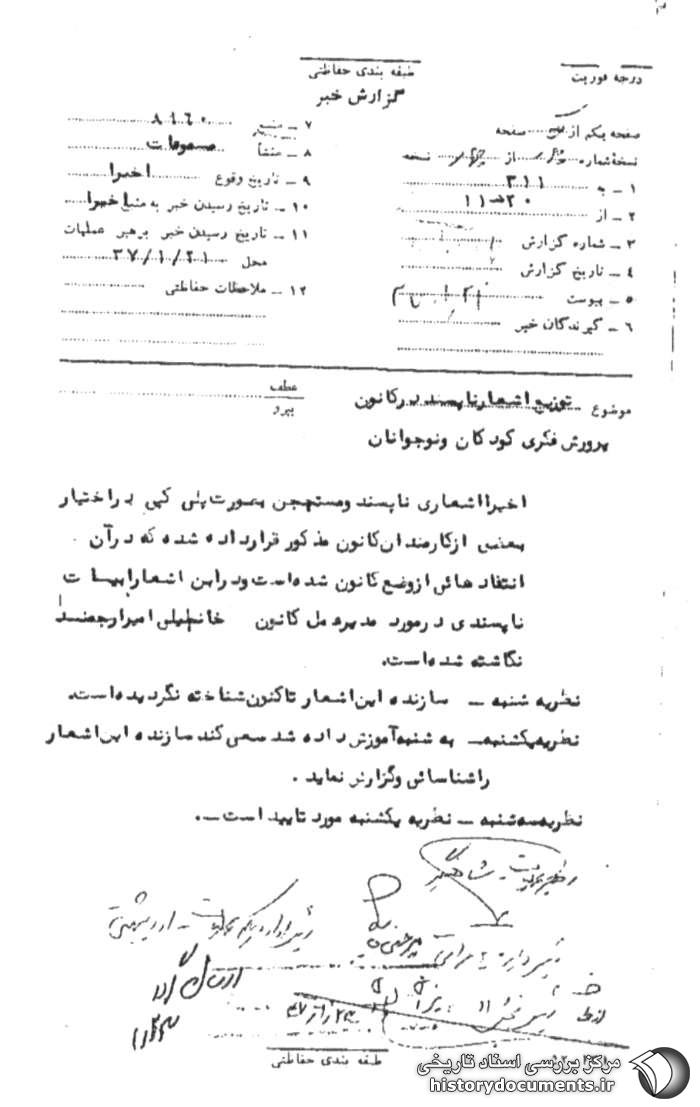 درجه فوریت
طبقه بندی حفاظتی
گزارش خبر
صفحه یکم از صفحه
نسخهٔ شماره از چهار نسخه
۱ – به ۳۱۱
۲ – از ۲۰ھ۱۱
۳ – شماره گزارش
۴ – تاریخ گزارش
۵ – پیوست
۶ – گیرندگان خبر
۷ – منبع ۸۱۶۰
۸ – منشأ مسموعات
۹ – تاریخ وقوع اخیرا
۱۰ – تاریخ رسیدن خبر به منبع اخیرا
۱۱ – تاریخ رسیدن خبر برهبر عملیات
محل ۳۷/۱/۲۱
۱۲ – ملاحظات حفاظتی
عطف
پیرو
موضوع توزیع اشعار ناپسند در کانون
پرورش فکری کودکان ونوجوانان
اخیرا اشعاری ناپسند ومستهجن بصورت پلی کپی در اختیار
بعضی از کارمندان کانون مذکور قرار داده شده که در آن
انتقاد هائی از وضع کانون شده است ودر این اشعار ابیات
ناپسندی در مورد مدیرعامل کانون خانم لیلی امیرارجمند
نگاشته شده است.
نظریه شنبه – سازنده این اشعار تاکنون شناخته نگردیده است.
نظریه یکشنبه – به شنبه آموزش داده شد سعی کند سازنده این اشعار
را شناسائی وگزارش نماید .
نظریه سه شنبه – نظریه یکشنبه مورد تایید است –.
رهبر عملیات – شاهنگ
رئیس اداره یکم عملیات – اردیبهشتی
رئیس دایره
ارسال گردد
طبقه بندی حفاظتی
مرکز بررسی اسناد تاریخی
historydocuments.ir